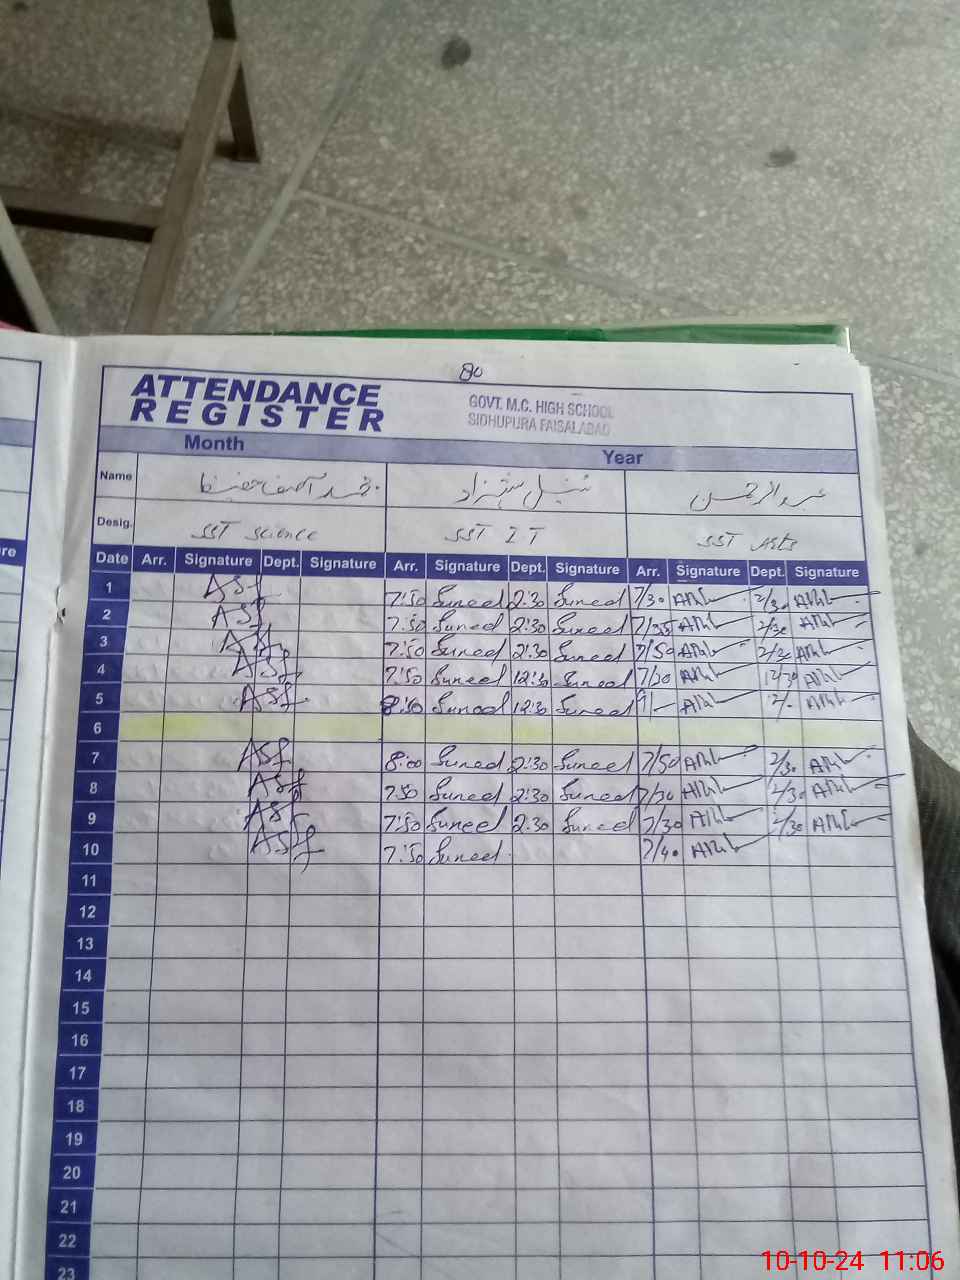 80
ATTENDANCE
REGISTER
GOVT. M.C. HIGH SCHOOL
SIDHUPURA FAISALABAD
Month Year
Name محمد آصف عبدالرحمن
Desig. SST Science SST IT SST Arts
re
Date Arr. Signature Dept. Signature Arr. Signature Dept. Signature Arr. Signature Dept. Signature
1 Asf 7:50 Suneel 2:30 Suneel 7/30 2/30
2 Asf 7:50 Suneel 2:30 Suneel 7/35 2/30
3 Asf 7:50 Suneel 2:30 Suneel 7/50 2/30
4 Asf 7:50 Suneel 12:30 Suneel 7/30 12/30
5 Asf Suneel 12:30 Suneel
6
7 Asf 8:00 Suneel 2:30 Suneel 7/50 2/30
8 Asf 7:50 Suneel 2:30 Suneel 7/30 2/30
9 Asf 7:50 Suneel 2:30 Suneel 7/30 2/30
10 Asf 7:50 Suneel 7/40
11
12
13
14
15
16
17
18
19
20
21
22
23
10-10-24 11:06